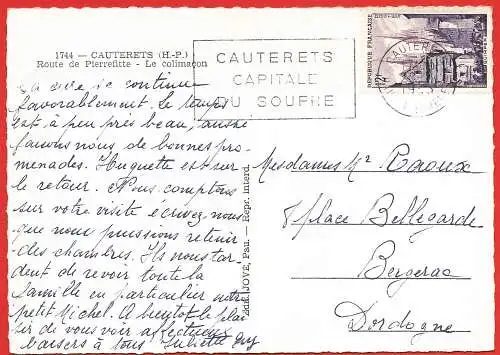 1744 - CAUTERETS (H.-P.)
Route de Pierrefitte - Le colimaçon
CAUTERETS
CAPITALE
DU SOUFRE
RÉPUBLIQUE FRANÇAISE
CAUTERETS
La cure se continue
favorablement. Le temps
est à peu près beau, aussi
faisons nous de bonnes pro
menades. Huguette est sur
le retour. Nous comptons
sur votre visite écrivez-nous
que nous puissions retenir
des chambres. Ils nous tar
dent de revoir toute la
famille en particulier notre
petit Michel. A bientôt le plai
sir de vous voir affectueux
baisers à tous Juliette
Edit. JOVÉ, Pau. - Repr. interd.
Mesdames Mr Raoux
8 place Bellegarde
Bergerac
Dordogne